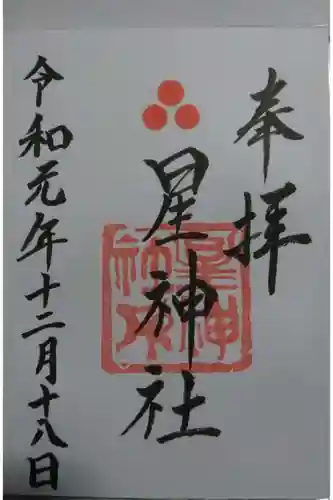 奉拝
星神社
星神
社印
令和元年十二月十八日